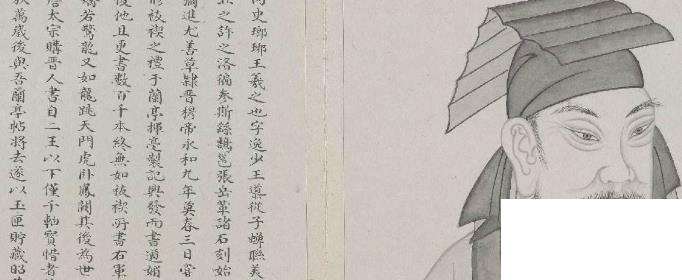 史瑯琊王羲之也字逸少王導從子蟬聯美
之許之洛徧參斯繇鵠邕張岳華諸石刻始
進尤善草隸晉穆帝永和九年莫春三日嘗
祓禊之禮于蘭亭揮毫製記興發而書遒媚
後他日更書數百千本終無如祓禊所書右軍
矯若驚龍又如龍跳天門虎卧鳳闕其後為世
唐太宗購晉人書自二王以下僅千軸寶惜者
秋萬歲後與吾蘭亭帖將去遂以玉匣貯藏昭